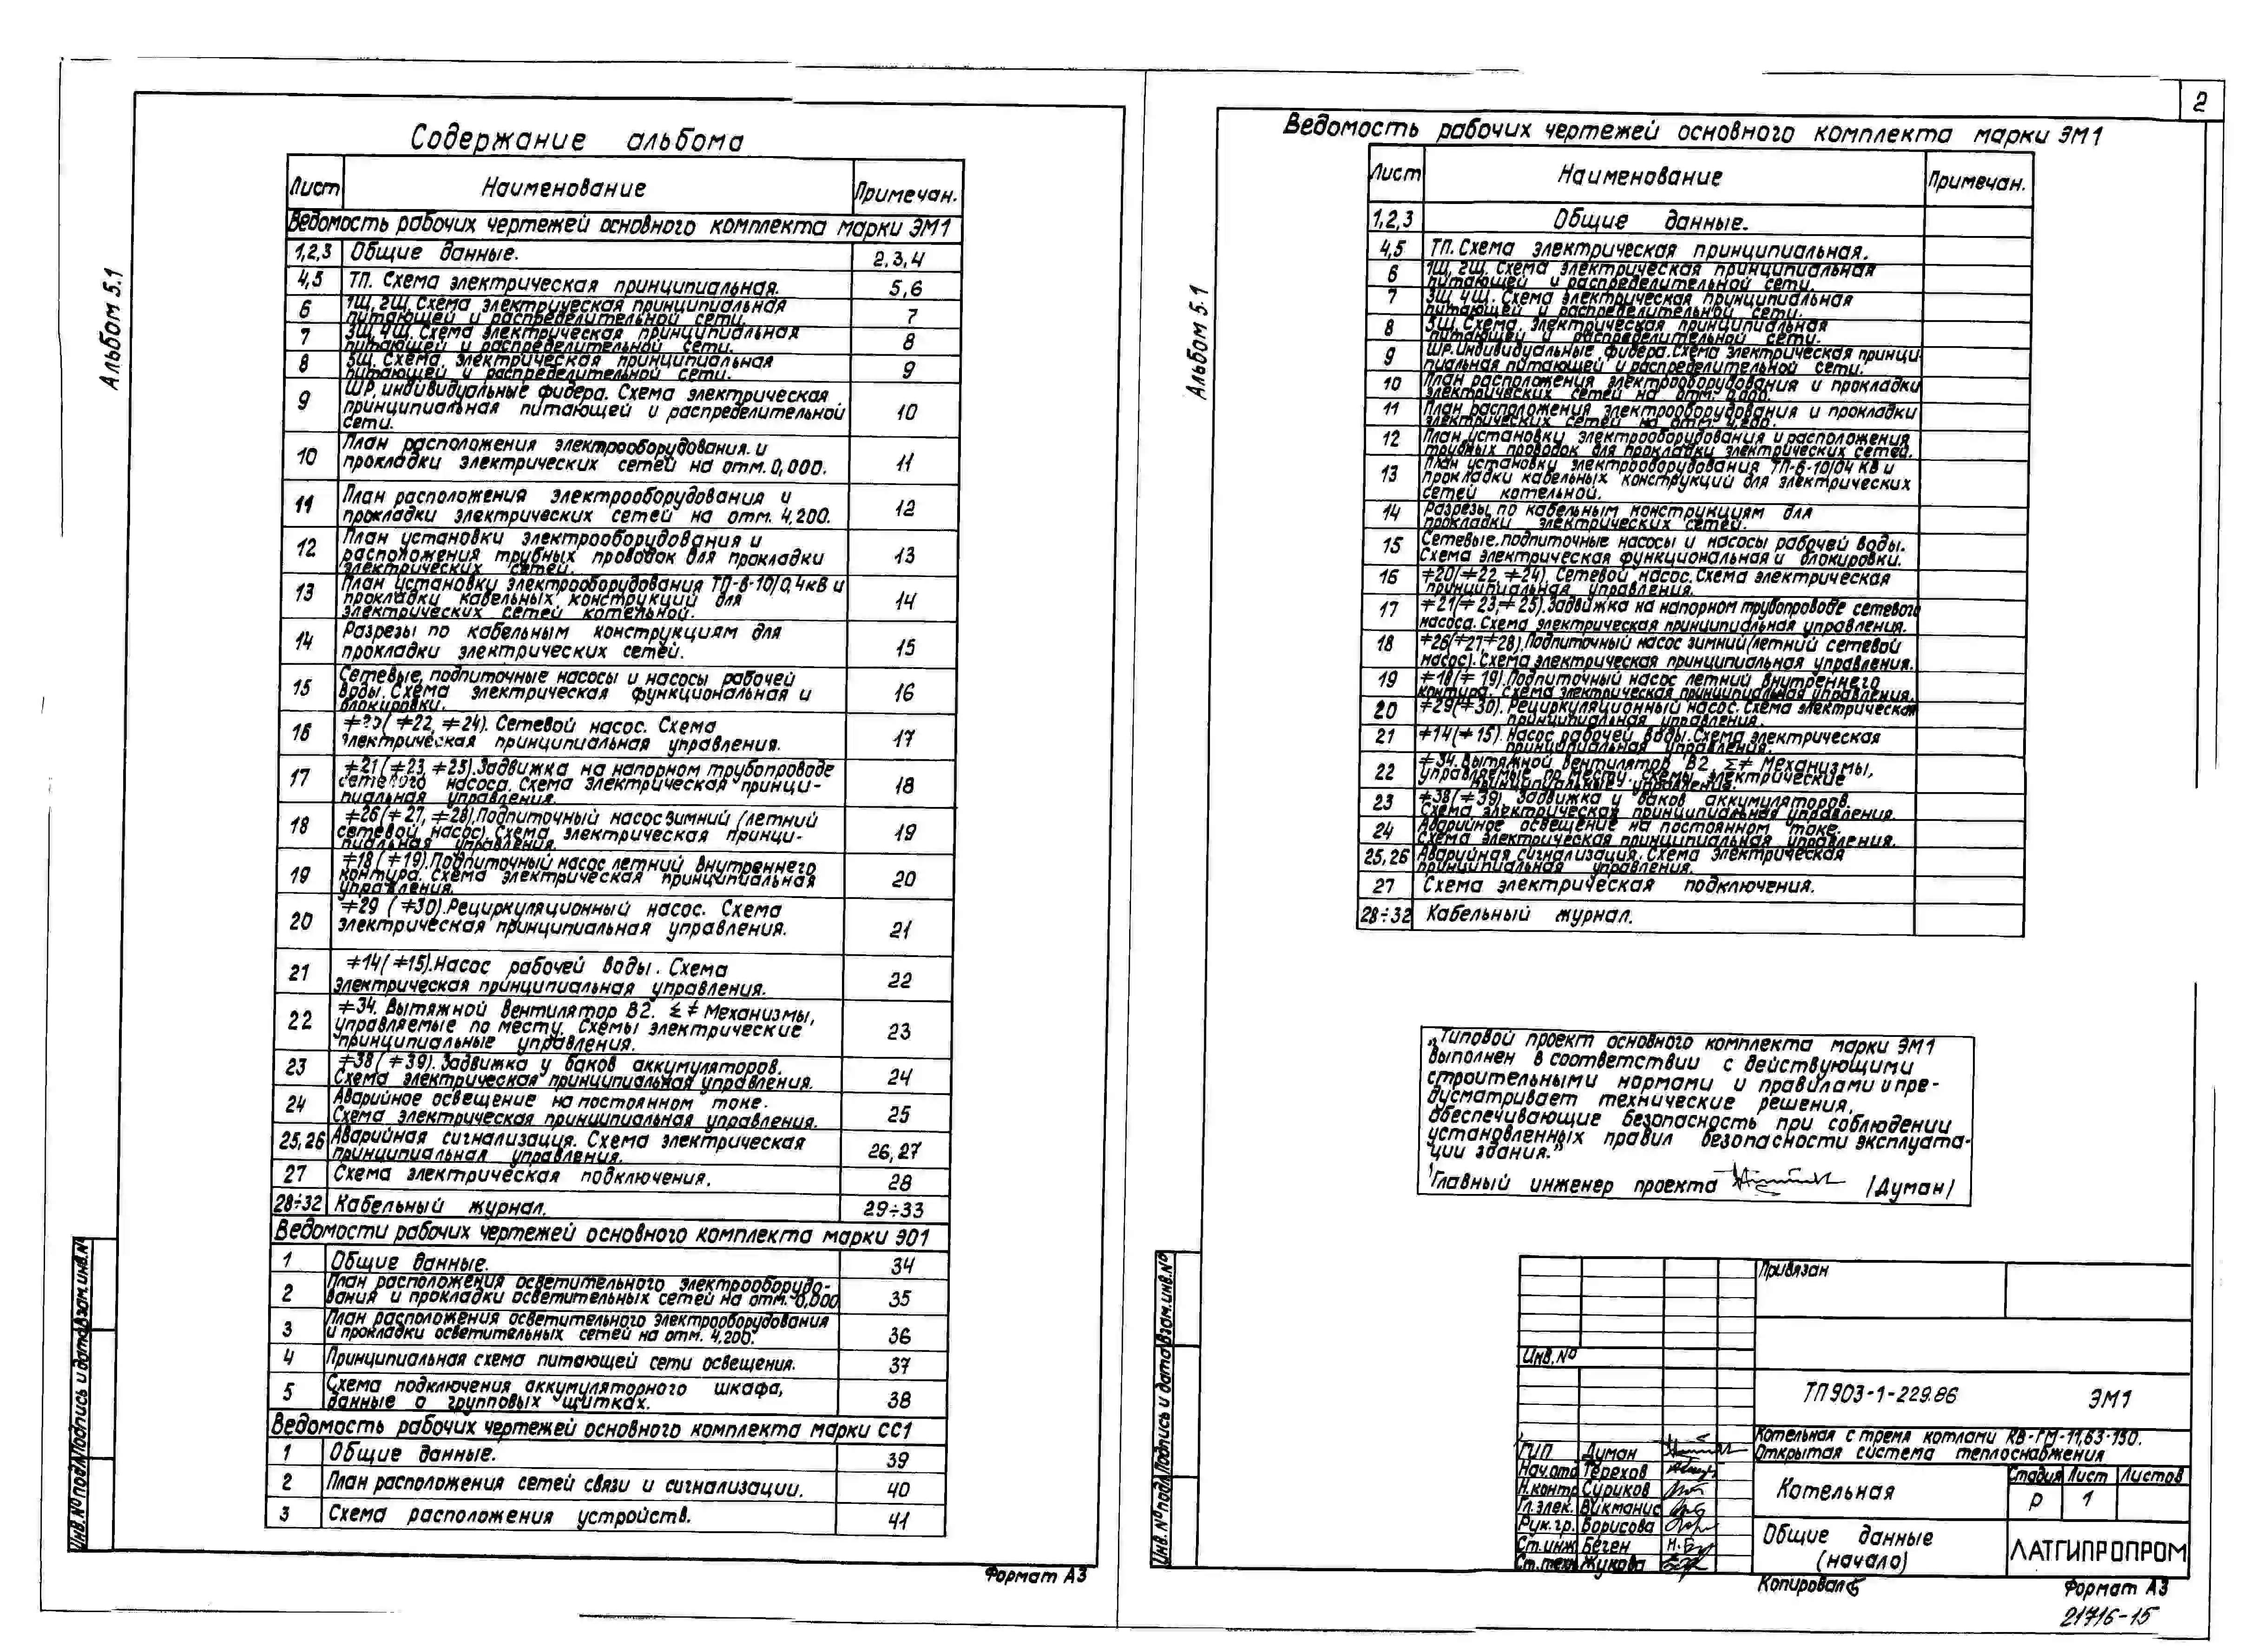 Альбом 5.1
Содержание альбома
Лист Наименование Примечан.
Ведомость рабочих чертежей основного комплекта марки ЭМ1
1,2,3 Общие данные. 2,3,4
4,5 ТП. Схема электрическая принципиальная. 5,6
6 1Щ, 2Щ. Схема электрическая принципиальная
питающей и распределительной сети. 7
7 3Щ, 4Щ. Схема электрическая принципиальная
питающей и распределительной сети. 8
8 5Щ. Схема электрическая принципиальная
питающей и распределительной сети. 9
9 ШР, индивидуальные фидера. Схема электрическая
принципиальная питающей и распределительной 10
сети.
10 План расположения электрооборудования и
прокладки электрических сетей на отм. 0,000. 11
11 План расположения электрооборудования и
прокладки электрических сетей на отм. 4,200. 12
12 План установки электрооборудования и
расположения трубных проводок для прокладки 13
электрических сетей.
13 План установки электрооборудования ТП-6-10/0,4кВ и
прокладки кабельных конструкций для 14
электрических сетей котельной.
14 Разрезы по кабельным конструкциям для
прокладки электрических сетей. 15
15 Сетевые, подпиточные насосы и насосы рабочей
воды. Схема электрическая функциональная и 16
блокировки.
16 ≠20(≠22, ≠24). Сетевой насос. Схема
электрическая принципиальная управления. 17
17 ≠21(≠23, ≠25). Задвижка на напорном трубопроводе
сетевого насоса. Схема электрическая принци- 18
пиальная управления.
18 ≠26(≠27, ≠28). Подпиточный насос зимний (летний
сетевой насос). Схема электрическая принци- 19
пиальная управления.
19 ≠18(≠19). Подпиточный насос летний внутреннего
контура. Схема электрическая принципиальная 20
управления.
20 ≠29 (≠30). Рециркуляционный насос. Схема
электрическая принципиальная управления. 21
21 ≠14(≠15). Насос рабочей воды. Схема
электрическая принципиальная управления. 22
22 ≠34. Вытяжной вентилятор В2. Σ≠ Механизмы,
управляемые по месту. Схемы электрические 23
принципиальные управления.
23 ≠38(≠39). Задвижка у баков аккумуляторов.
Схема электрическая принципиальная управления. 24
24 Аварийное освещение на постоянном токе.
Схема электрическая принципиальная управления. 25
25,26 Аварийная сигнализация. Схема электрическая
принципиальная управления. 26,27
27 Схема электрическая подключения. 28
28÷32 Кабельный журнал. 29÷33
Ведомости рабочих чертежей основного комплекта марки ЭО1
1 Общие данные. 34
2 План расположения осветительного электрооборудо-
вания и прокладки осветительных сетей на отм. 0,000 35
3 План расположения осветительного электрооборудования
и прокладки осветительных сетей на отм. 4,200. 36
4 Принципиальная схема питающей сети освещения. 37
5 Схема подключения аккумуляторного шкафа,
данные о групповых щитках. 38
Ведомость рабочих чертежей основного комплекта марки СС1
1 Общие данные. 39
2 План расположения сетей связи и сигнализации. 40
3 Схема расположения устройств. 41
Инв.№подл. Подпись и дата Взам.инв.№
Формат А3
2
Альбом 5.1
Ведомость рабочих чертежей основного комплекта марки ЭМ1
Лист Наименование Примечан.
1,2,3 Общие данные.
4,5 ТП. Схема электрическая принципиальная.
6 1Щ, 2Щ. Схема электрическая принципиальная
питающей и распределительной сети.
7 3Щ, 4Щ. Схема электрическая принципиальная
питающей и распределительной сети.
8 5Щ. Схема электрическая принципиальная
питающей и распределительной сети.
9 ШР. Индивидуальные фидера. Схема электрическая принци-
пиальная питающей и распределительной сети.
10 План расположения электрооборудования и прокладки
электрических сетей на отм. 0,000.
11 План расположения электрооборудования и прокладки
электрических сетей на отм. 4,200.
12 План установки электрооборудования и расположения
трубных проводок для прокладки электрических сетей.
13 План установки электрооборудования ТП-6-10/04 кВ и
прокладки кабельных конструкций для электрических
сетей котельной.
14 Разрезы по кабельным конструкциям для
прокладки электрических сетей.
15 Сетевые, подпиточные насосы и насосы рабочей воды.
Схема электрическая функциональная и блокировки.
16 ≠20(≠22, ≠24). Сетевой насос. Схема электрическая
принципиальная управления.
17 ≠21(≠23, ≠25). Задвижка на напорном трубопроводе сетевого
насоса. Схема электрическая принципиальная управления.
18 ≠26(≠27,≠28). Подпиточный насос зимний(летний сетевой
насос). Схема электрическая принципиальная управления.
19 ≠18(≠19). Подпиточный насос летний внутреннего
контура. Схема электрическая принципиальная управления.
20 ≠29(≠30). Рециркуляционный насос. Схема электрическая
принципиальная управления.
21 ≠14(≠15). Насос рабочей воды. Схема электрическая
принципиальная управления.
22 ≠34. Вытяжной вентилятор В2, Σ≠ Механизмы,
управляемые по месту. Схемы электрические
принципиальные управления.
23 ≠38(≠39) Задвижка у баков аккумуляторов.
Схема электрическая принципиальная управления.
24 Аварийное освещение на постоянном токе.
Схема электрическая принципиальная управления.
25,26 Аварийная сигнализация. Схема электрическая
принципиальная управления.
27 Схема электрическая подключения.
28÷32 Кабельный журнал.
„Типовой проект основного комплекта марки ЭМ1
выполнен в соответствии с действующими
строительными нормами и правилами и пре-
дусматривает технические решения,
обеспечивающие безопасность при соблюдении
установленных правил безопасности эксплуата-
ции здания.”
Главный инженер проекта /Думан/
Привязан
Инв.№
ТП 903-1-229.86 ЭМ1
Котельная с тремя котлами КВ-ГМ-11,63-150.
Открытая система теплоснабжения
ГИП Думан
Нач.отд Терехов
Н.контр Суриков
Гл.элек. Викманис
Рук.гр. Борисова
Ст.инж Беген
Ст.техн Жукова
Котельная
Стадия Лист Листов
Р 1
Общие данные
(начало)
ЛАТГИПРОПРОМ
Инв.№подл. Подпись и дата Взам.инв.№
Копировал
Формат А3
21716-15